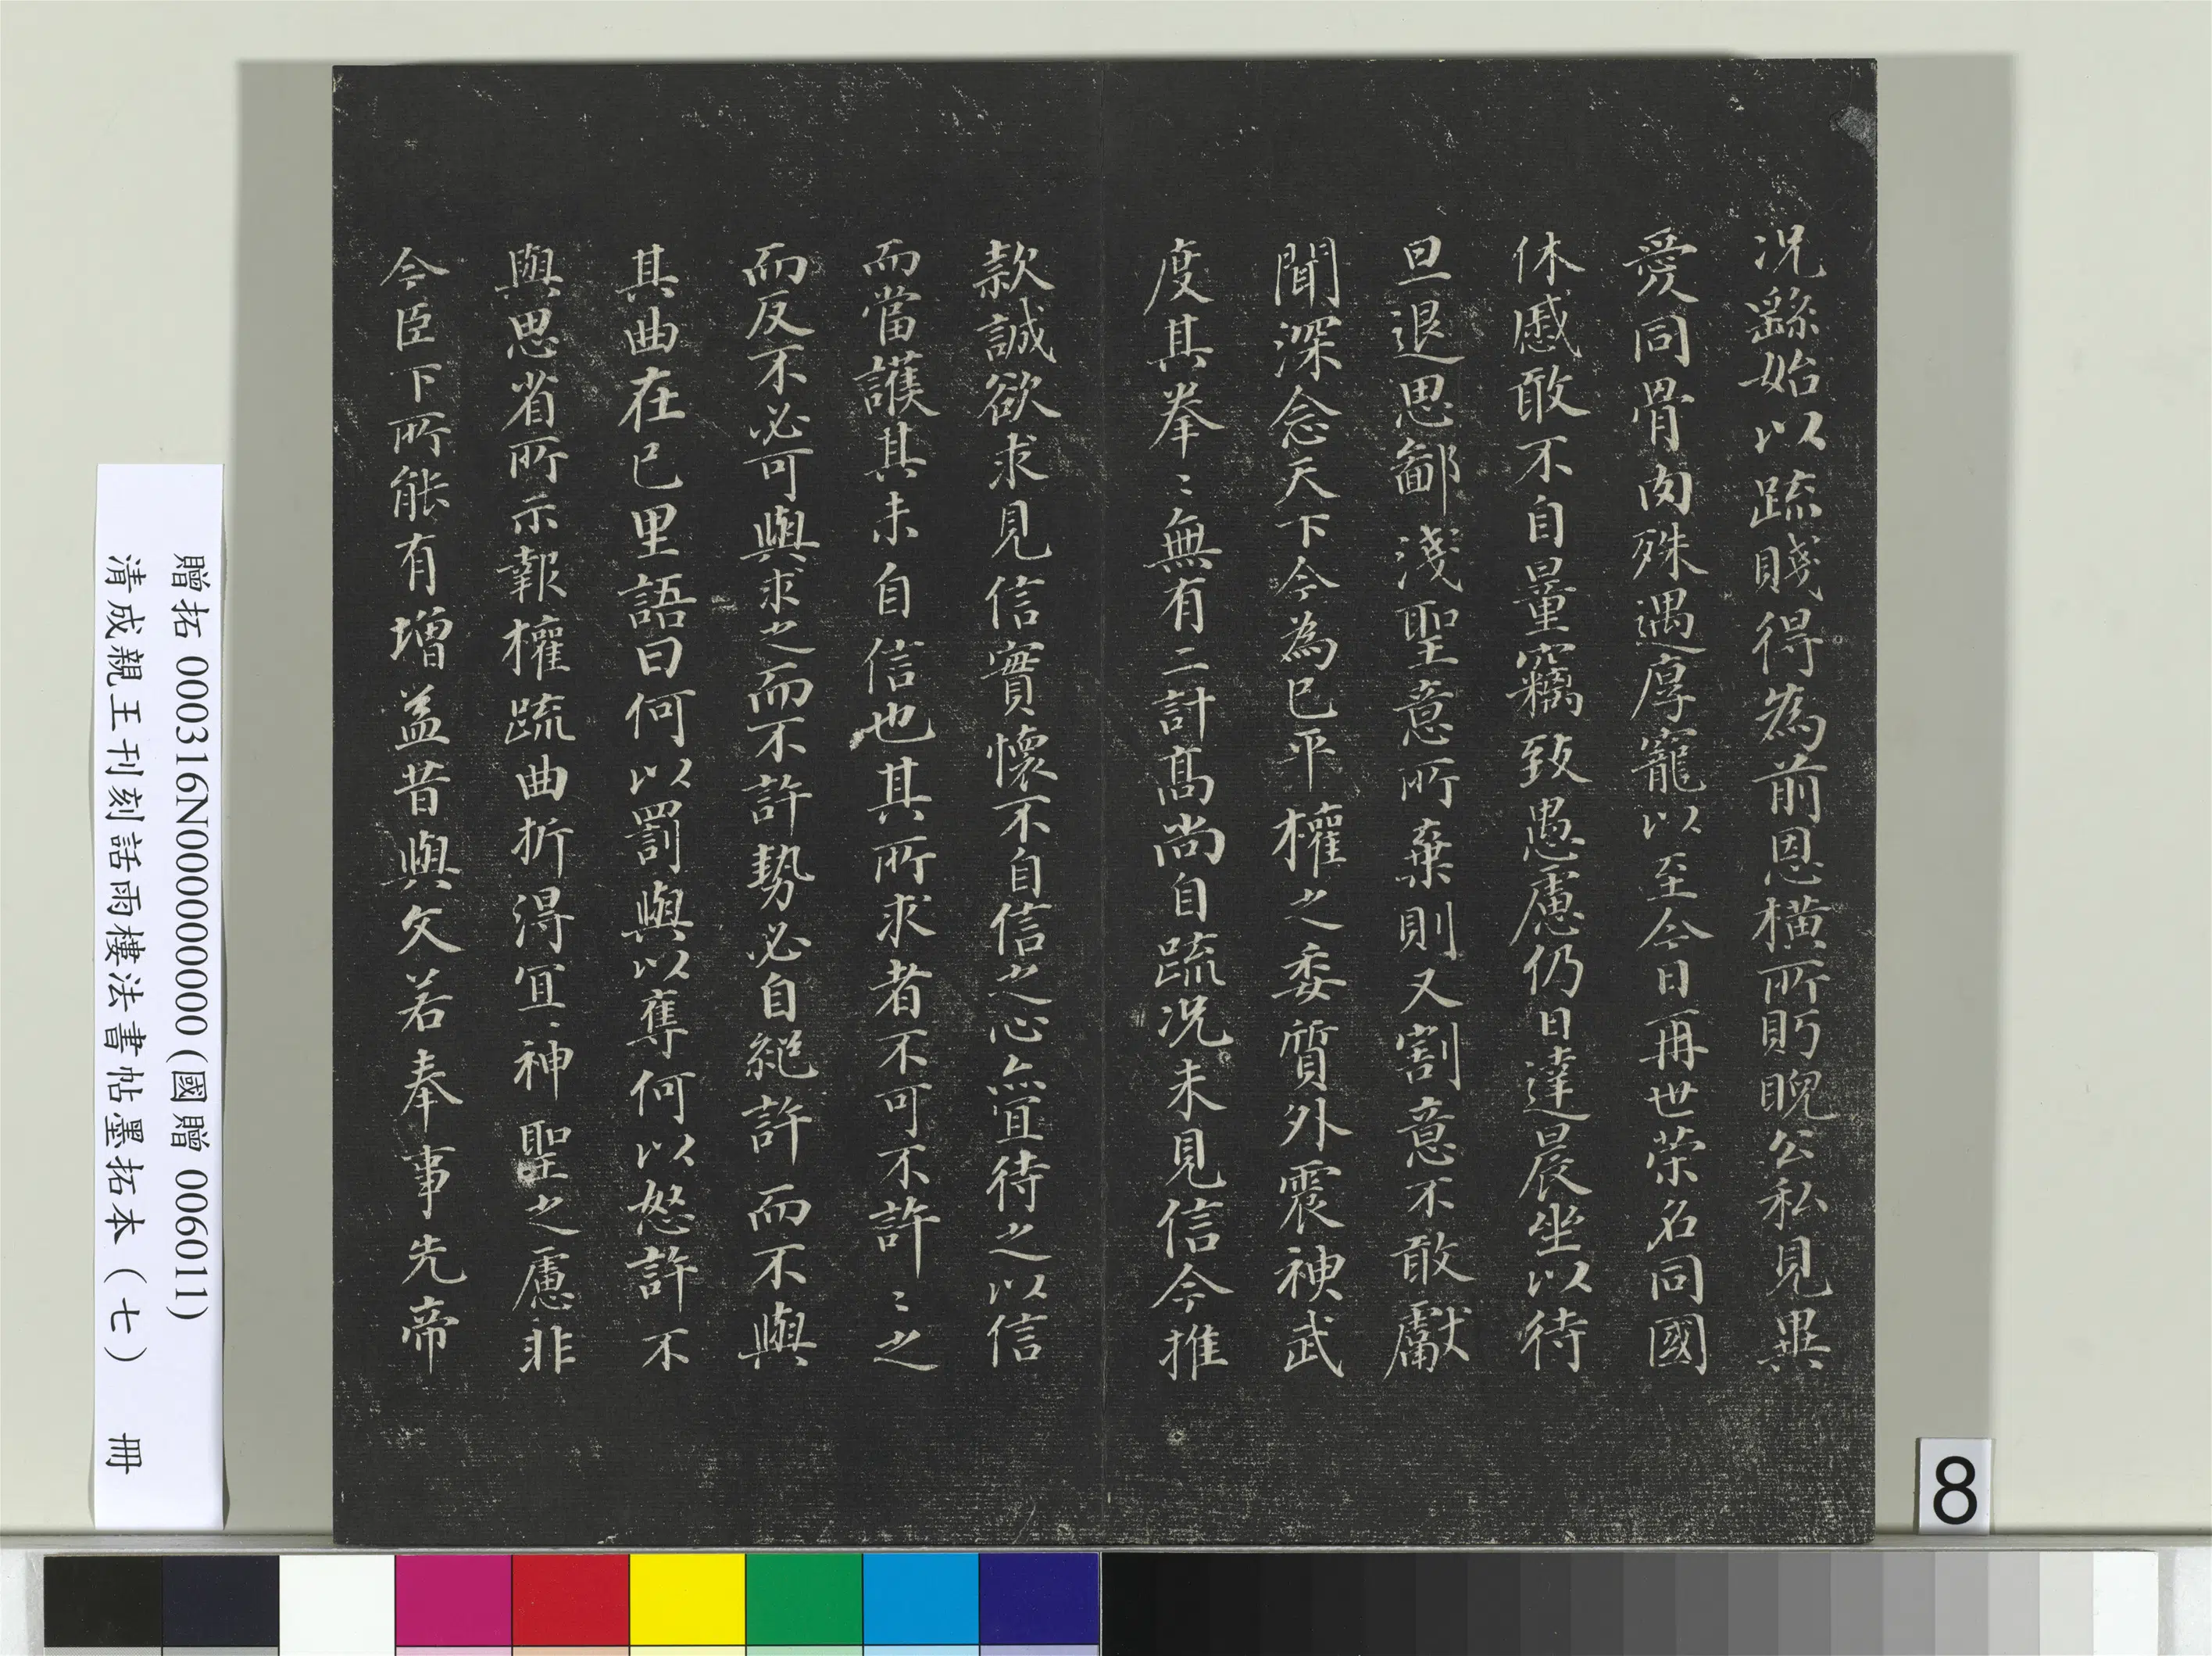 況繇始以疏賤得為前恩橫所貺睨公私見異
愛同骨肉殊遇厚寵以至今日再世荣名同國
休慼敢不自量竊致愚慮仍日達晨坐以待
旦退思鄙淺聖意所棄則又割意不敢獻
聞深念天下今為已平權之委質外震神武
度其拳〻無有二計髙尚自疏況未見信今推
款誠欲求見信實懷不自信之心亦宜待之以信
而當護其未自信也其所求者不可不許〻之
而反不必可與求之而不許勢必自絕許而不與
其曲在己里語曰何以罰與以奪何以怒許不
與思省所示報權疏曲折得宜神聖之慮非
今臣下所能有增益昔與文若奉事先帝
贈拓 000316N000000000 (國贈 006011)
清成親王刊刻詒晉樓法書帖墨拓本(七) 冊
8